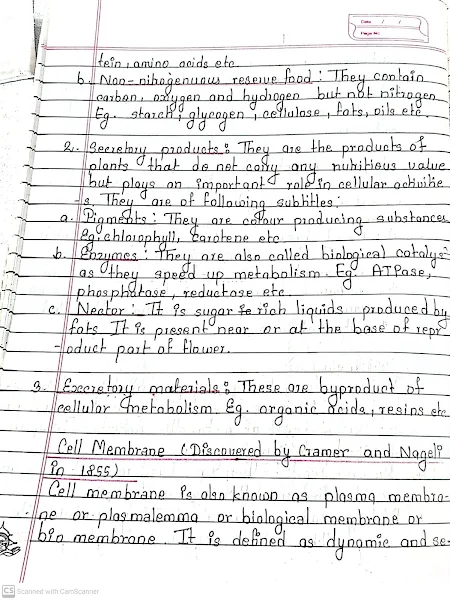 Date / /
Page No.
tein, amino acids etc.
b. Non-nitrogenuous reserve food : They contain
carbon, oxygen and hydrogen but not nitrogen
Eg. starch, glycogen, cellulose, fats, oils etc.
2. Secretory products : They are the products of
plants that do not carry any nutritious value
but plays an important role in cellular activitie
-s. They are of following subtitles:
a. Pigments : They are colour producing substances
Eg. chlorophyll, carotene etc
b. Enzymes : They are also called biological catalys-
as they speed up metabolism. Eg. ATPase,
phosphatase, reductase etc
c. Nectar : It is sugar rich liquids produced by
fats. It is present near or at the base of repr
-oduct part of flower.
3. Excretory materials : These are byproduct of
cellular metabolism. Eg. organic acids, resins etc
Cell Membrane (Discovered by Cramer and Nageli
in 1855)
Cell membrane is also known as plasma membra-
ne or plasmalemma or biological membrane or
bio membrane. It is defined as dynamic and se-
CS Scanned with CamScanner